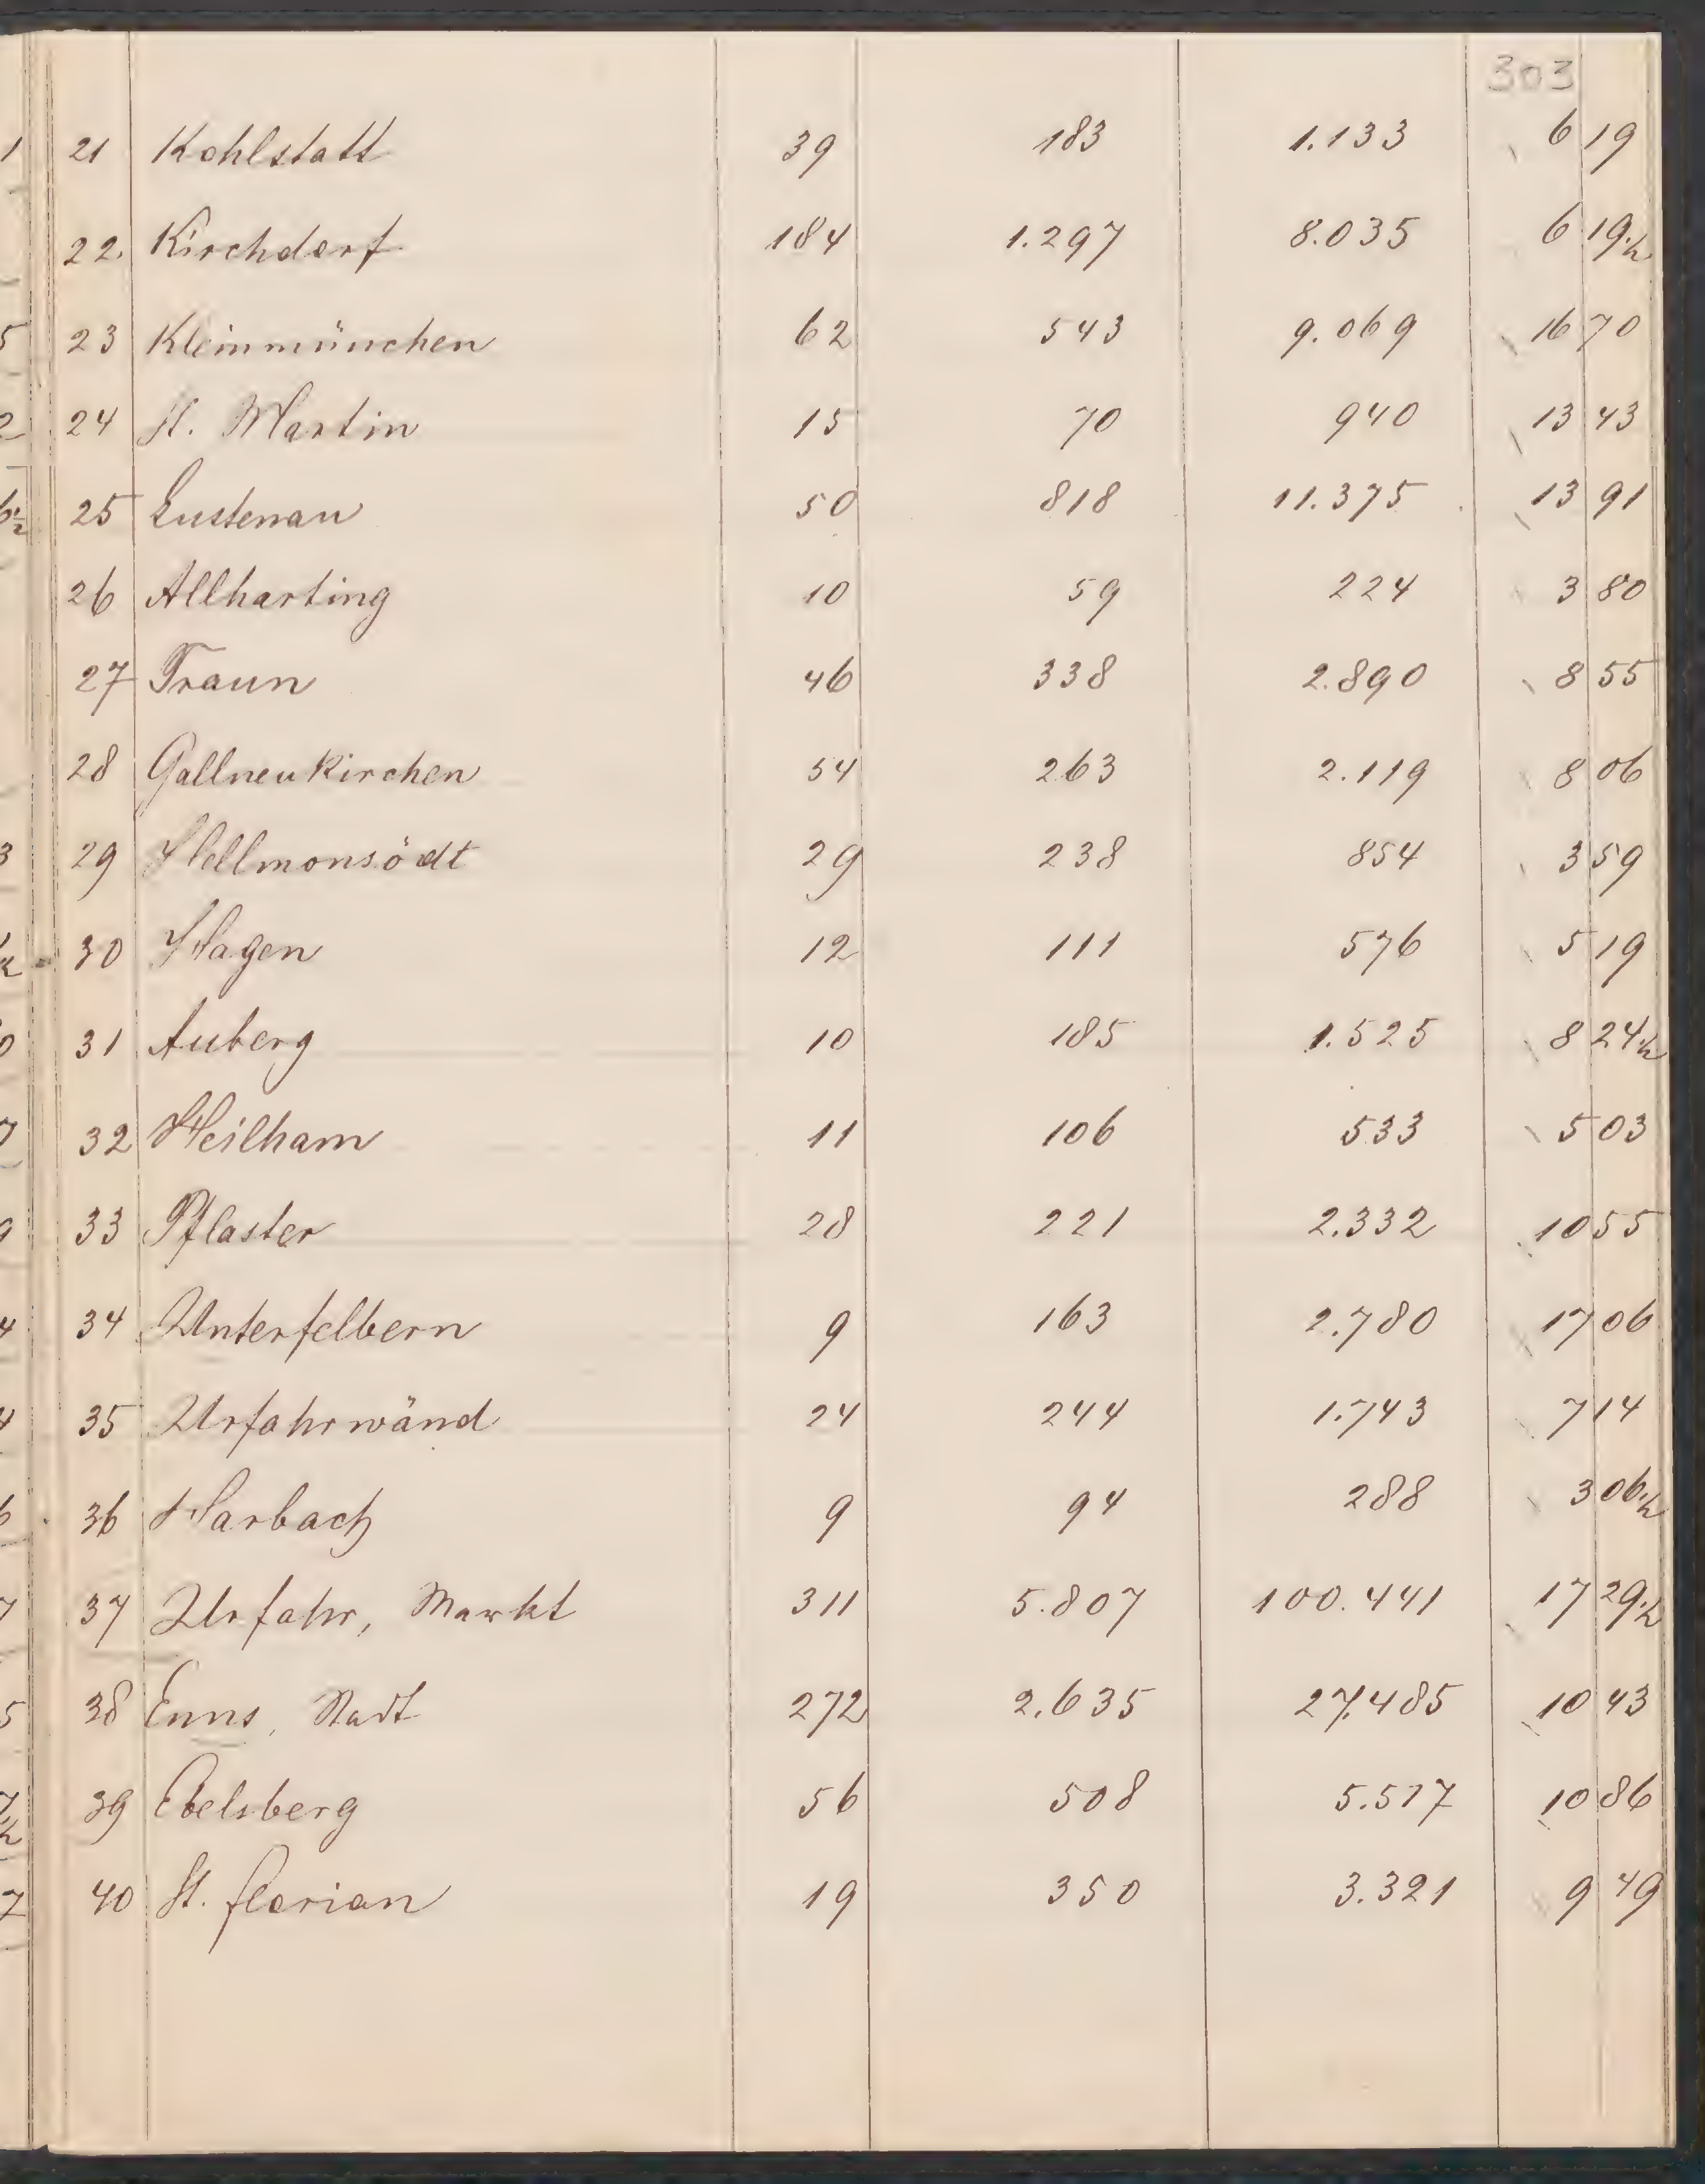 303
21 Kohlstatt 39 183 1.133 6 19
22. Kirchdorf 184 1.297 8.035 6 19½
23 Kleinmünchen 62 543 9.069 16 70
24 St. Martin 15 70 940 13 43
25 Lustenau 50 818 11.375 13 91
26 Allharting 10 59 224 3 80
27 Traun 46 338 2.890 8 55
28 Gallneukirchen 54 263 2.119 8 06
29 Hellmonsödt 29 238 854 3 59
30 Hagen 12 111 576 5 19
31 Auberg 10 185 1.525 8 24½
32 Heilham 11 106 533 5 03
33 Pflaster 28 221 2.332 10 55
34 Unterfelbern 9 163 2.780 17 06
35 Urfahrwänd 24 244 1.743 7 14
36 Harbach 9 94 288 3 06½
37 Urfahr, Markt 311 5.807 100.441 17 29½
38 Enns, Stadt 272 2.635 27.485 10 43
39 Ebelsberg 56 508 5.517 10 86
40 St. florian 19 350 3.321 9 49